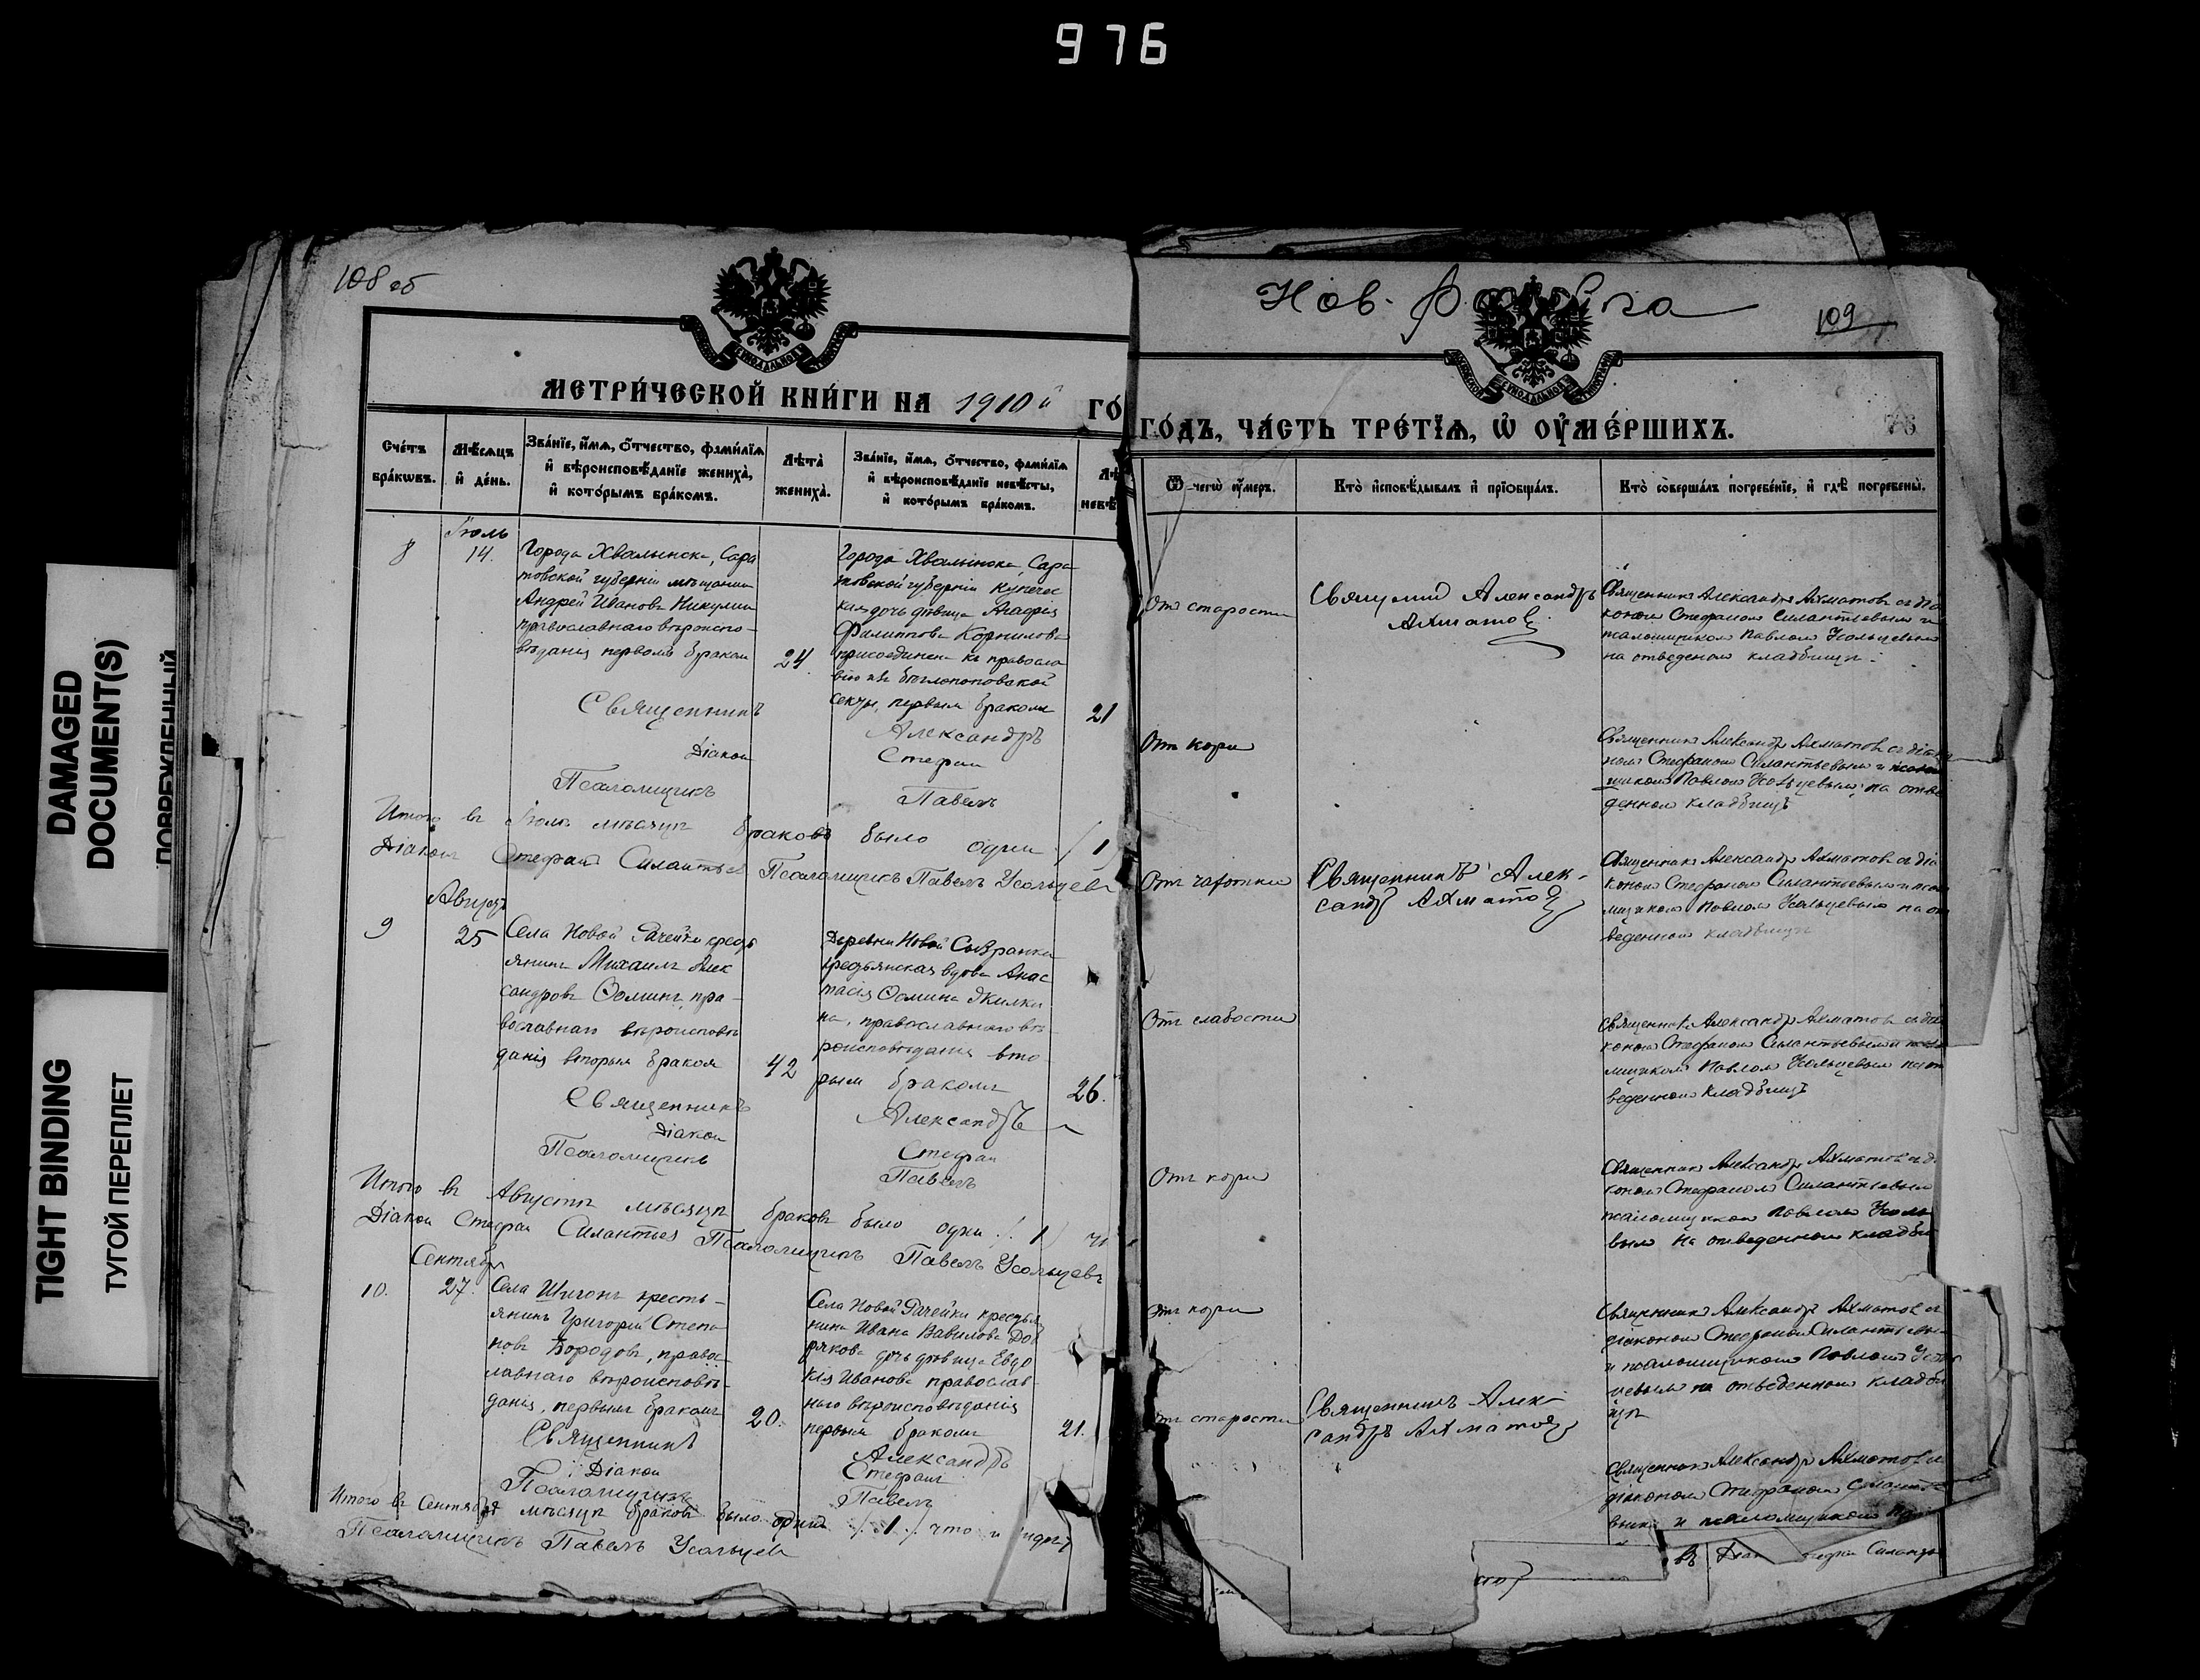 976
DAMAGED
DOCUMENT(S)
TIGHT BINDING
ТУГОЙ ПЕРЕПЛЕТ
108 об
МЕТРИ́ЧЕСКОЙ КНИ́ГИ НА 1910й ГО́
Сче́тъ бра́кѡвъ.
Мѣ́сяцъ и҆ де́нь.
Зва́нїе, и҆́мѧ, ѻ҆́тчество, фами́лїѧ и҆ вѣроисповѣ́данїе жениха̀, и҆ кото́рымъ бра́комъ.
Лѣта̀ жениха̀.
Зва́нїе, и҆́мѧ, ѻ҆́тчество, фами́лїѧ и҆ вѣроисповѣ́данїе невѣ́сты, и҆ кото́рымъ бра́комъ.
Іюль
8
14.
Города Хвалынска, Сара
товской губерніи мѣщанин
Андрей Иванов Никулин
православнаго вѣроиспо-
вѣданія первымъ браком
24
Города Хвалынска, Сара
товской губерніи купечес
кая дочь дѣвица Агафія
Филиппова Корнилова
присоединена къ правосла
вію из бѣглопоповской
секты, первым браком
21
Священникъ
Александръ
Діакон
Стефан
Псаломщикъ
Павелъ
Итого въ Іюлѣ мѣсяцѣ браковъ было один (1)
Діакон Стефанъ Силантьев Псаломщикъ Павелъ Усольцевъ
Августъ
9
25
Села Новой Рачейки кресть
янинъ Михаилъ Алек
сандровъ Ѳоминъ, пра-
вославнаго вѣроисповѣ
данія вторым браком
42
Деревни Новой Сызранки
крестьянская вдова Анас
тасія Ѳомина Якилки
на, православнаго вѣ
роисповѣданія вто
рым браком
26.
Священникъ
Александръ
Діакон
Стефан
Псаломщикъ
Павелъ
Итого въ Августѣ мѣсяцѣ браковъ было один (1)
Діакон Стефан Силантьев Псаломщикъ Павелъ Усольцевъ
Сентябрь
10.
27.
Села Шигонъ кресть-
янинъ Григорій Степа
новъ Бородовъ, правос-
лавнаго вѣроисповѣ-
данія, первымъ бракомъ
20.
Села Новой Рачейки крестья
нина Ивана Вавилова Доб
рякова дочь дѣвица Евдо
кія Иванова православ-
наго вѣроисповѣданія
первым браком
21.
Священникъ
Александръ
Діакон
Стефанъ
Псаломщикъ
Павелъ
Итого въ Сентябрѣ мѣсяцѣ браковъ было один (1) что и
Псаломщикъ Павелъ Усольцевъ
Нов.
109
ГО́ДЪ, ЧА́СТЬ ТРЕ́ТЇѦ, Ѡ҆ ОУ҆МЕ́РШИХЪ.
Ѿ чегѡ̀ оу҆́меръ.
Кто̀ и҆сповѣ́дывалъ и҆ прїѡбща́лъ.
Кто̀ соверша́лъ погребе́нїе, и҆ гдѣ̀ погребены̀.
От старости
Священник Александръ
Ахматов
Священникъ Александръ Ахматовъ съ діа
коном Стефаном Силантьевым и
псаломщиком Павлом Усольцевым
на отведеном кладбищѣ.
От кори
Священник Александр Ахматов съ діако
ном Стефаном Силантьевым и псалом
щиком Павлом Усольцевым, на отве
денном кладбищѣ
От чахотки
Священникъ Алек-
сандр Ахматов
Священник Александр Ахматов съ діа
коном Стефаном Силантьевым и псало
мщиком Павлом Усольцевым на от
веденном кладбищѣ
От слабости
Священник Александр Ахматов съ діа
коном Стефаном Силантьевым и псало
мщиком Павлом Усольцевым на от
веденном кладбищѣ
От кори
Священник Александр Ахматов съ ді
коном Стефаном Силантьевым
псаломщиком Павлом Усольце
вым на отведенном кладби
От кори
Священник Александр Ахматов съ
діаконом Стефаном Силантьевы
и псаломщиком Павлом Усоль
цевым на отведенном кладби
щѣ
От старости
Священникъ Алек-
сандръ Ахматов
Священник Александр Ахматов съ
діаконом Стефаном Силантье
вым и псаломщиком